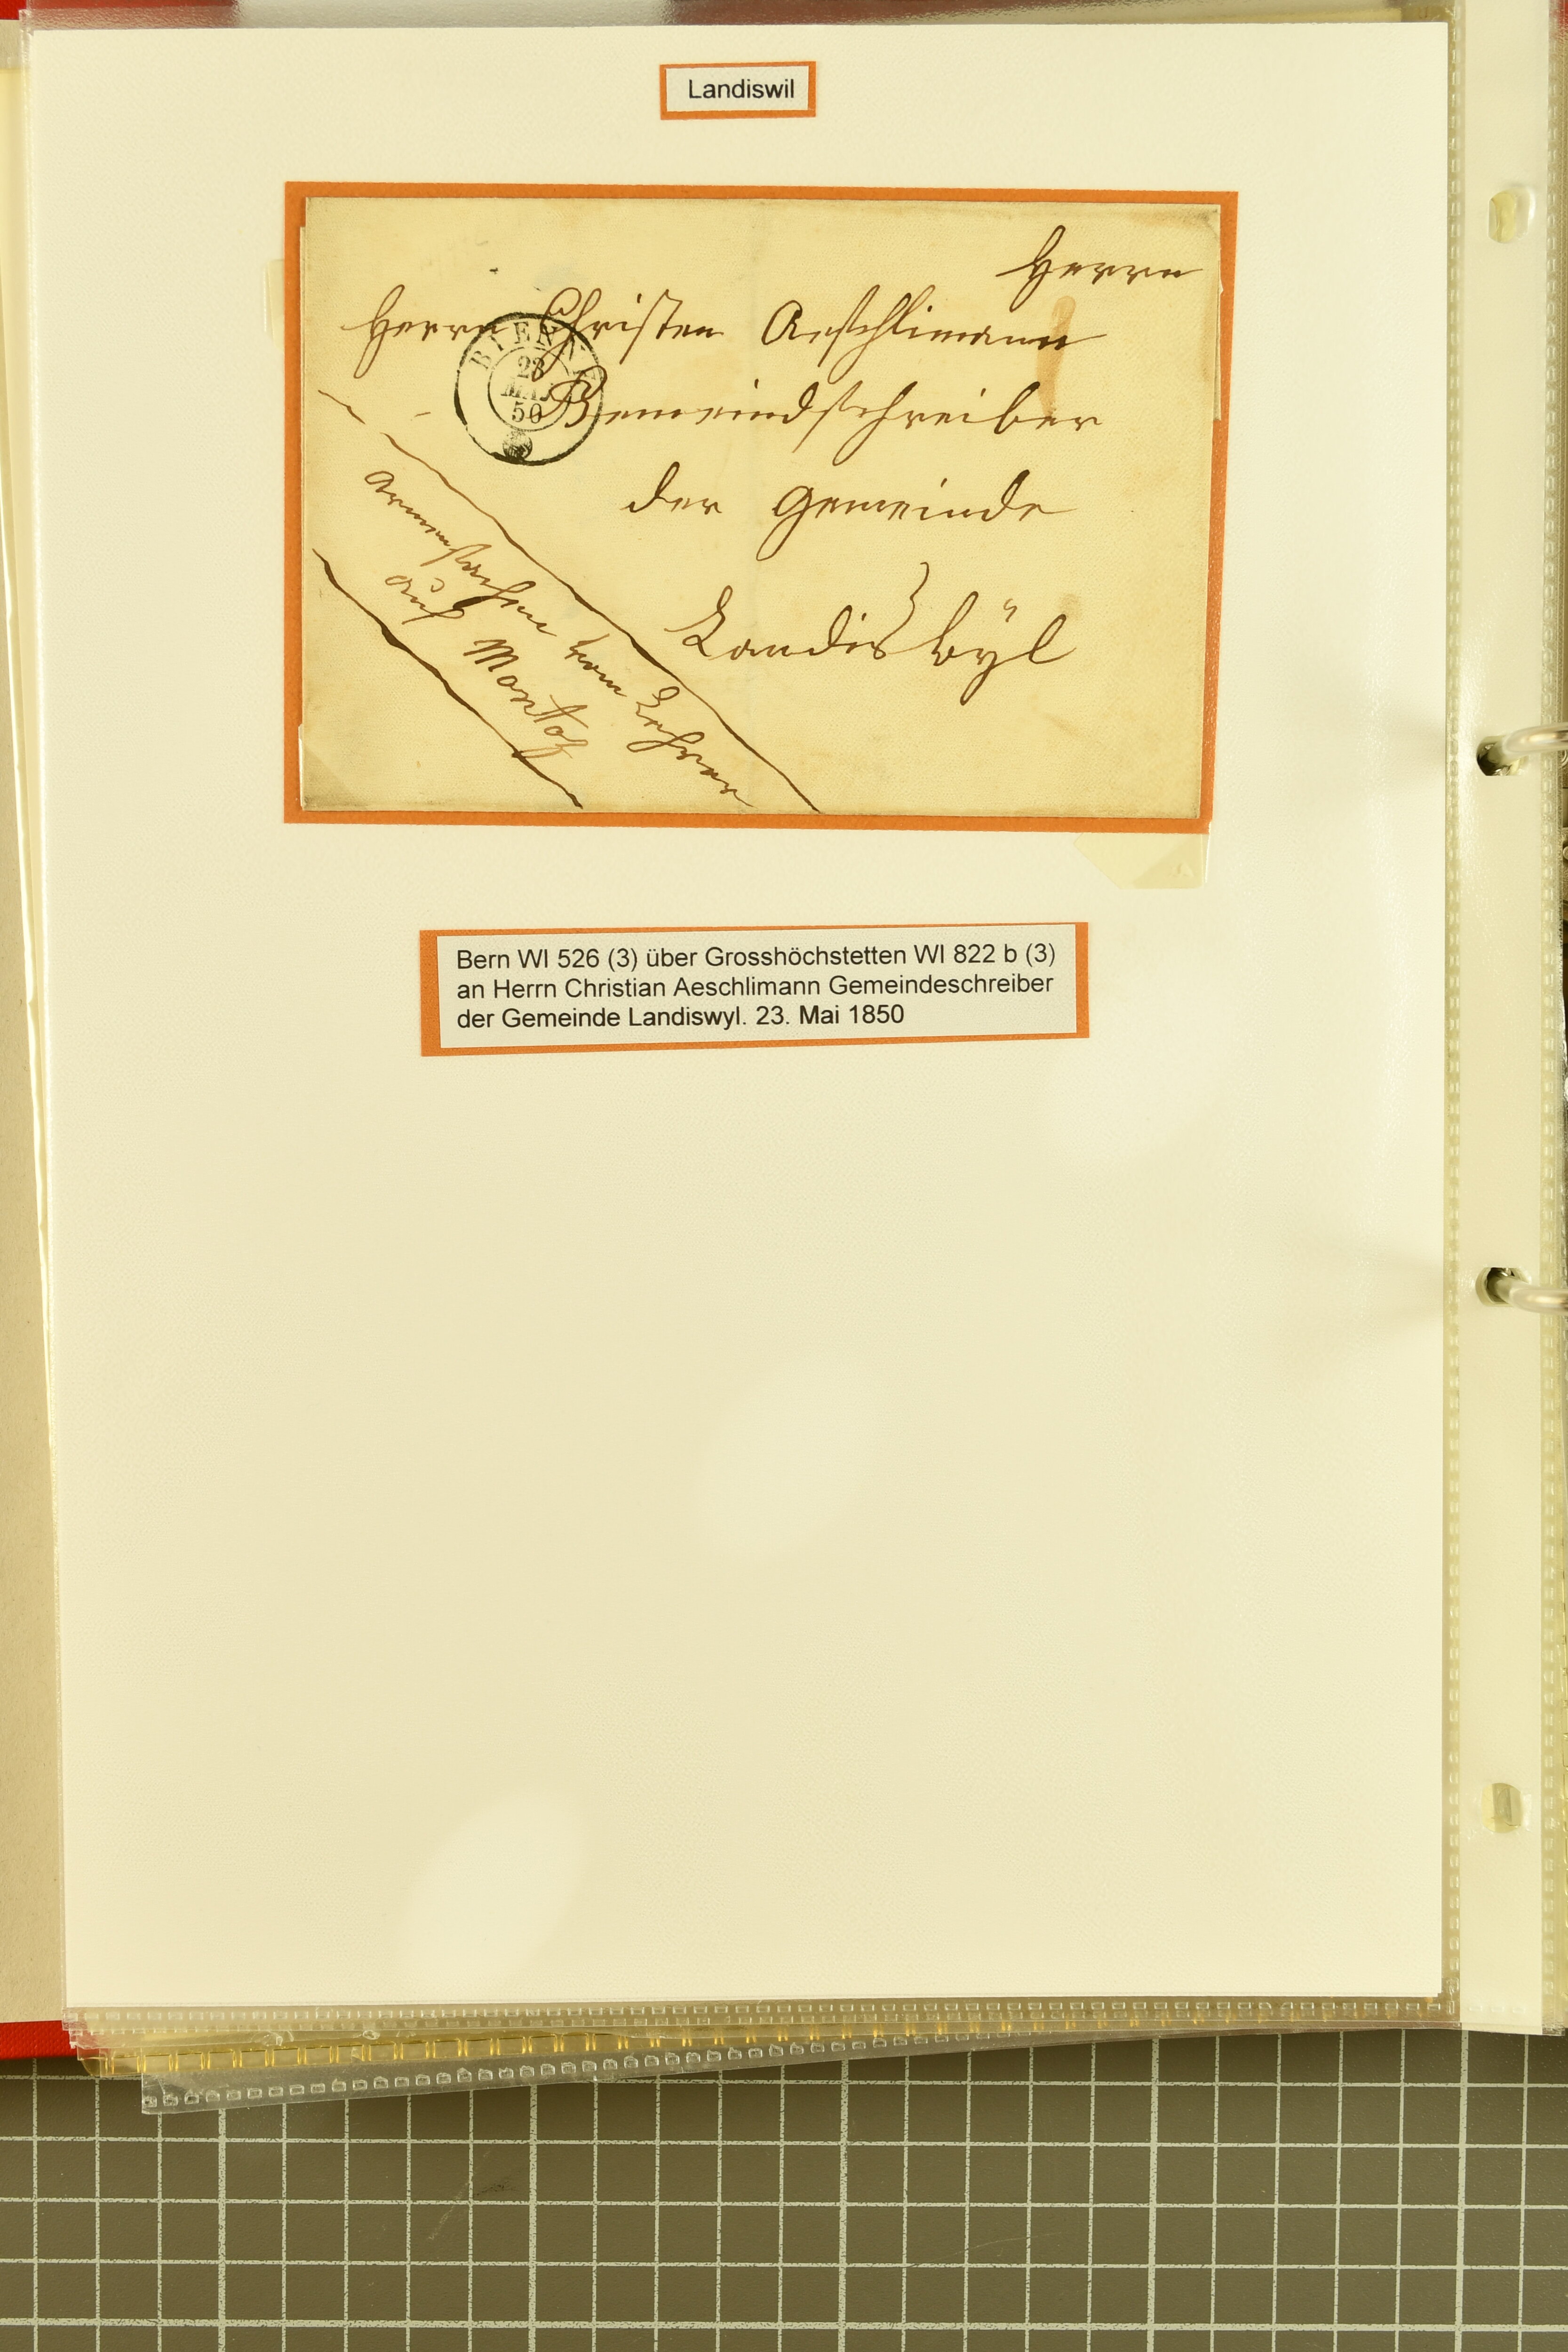 Landiswil
Herrn
Herrn Christen Aeschlimann
Gemeindschreiber
der Gemeinde
Landiswÿl
BIENNE
23
MAI
50
Armensachen vom Lehrer
auf Montoz
Bern WI 526 (3) über Grosshöchstetten WI 822 b (3)
an Herrn Christian Aeschlimann Gemeindeschreiber
der Gemeinde Landiswyl. 23. Mai 1850